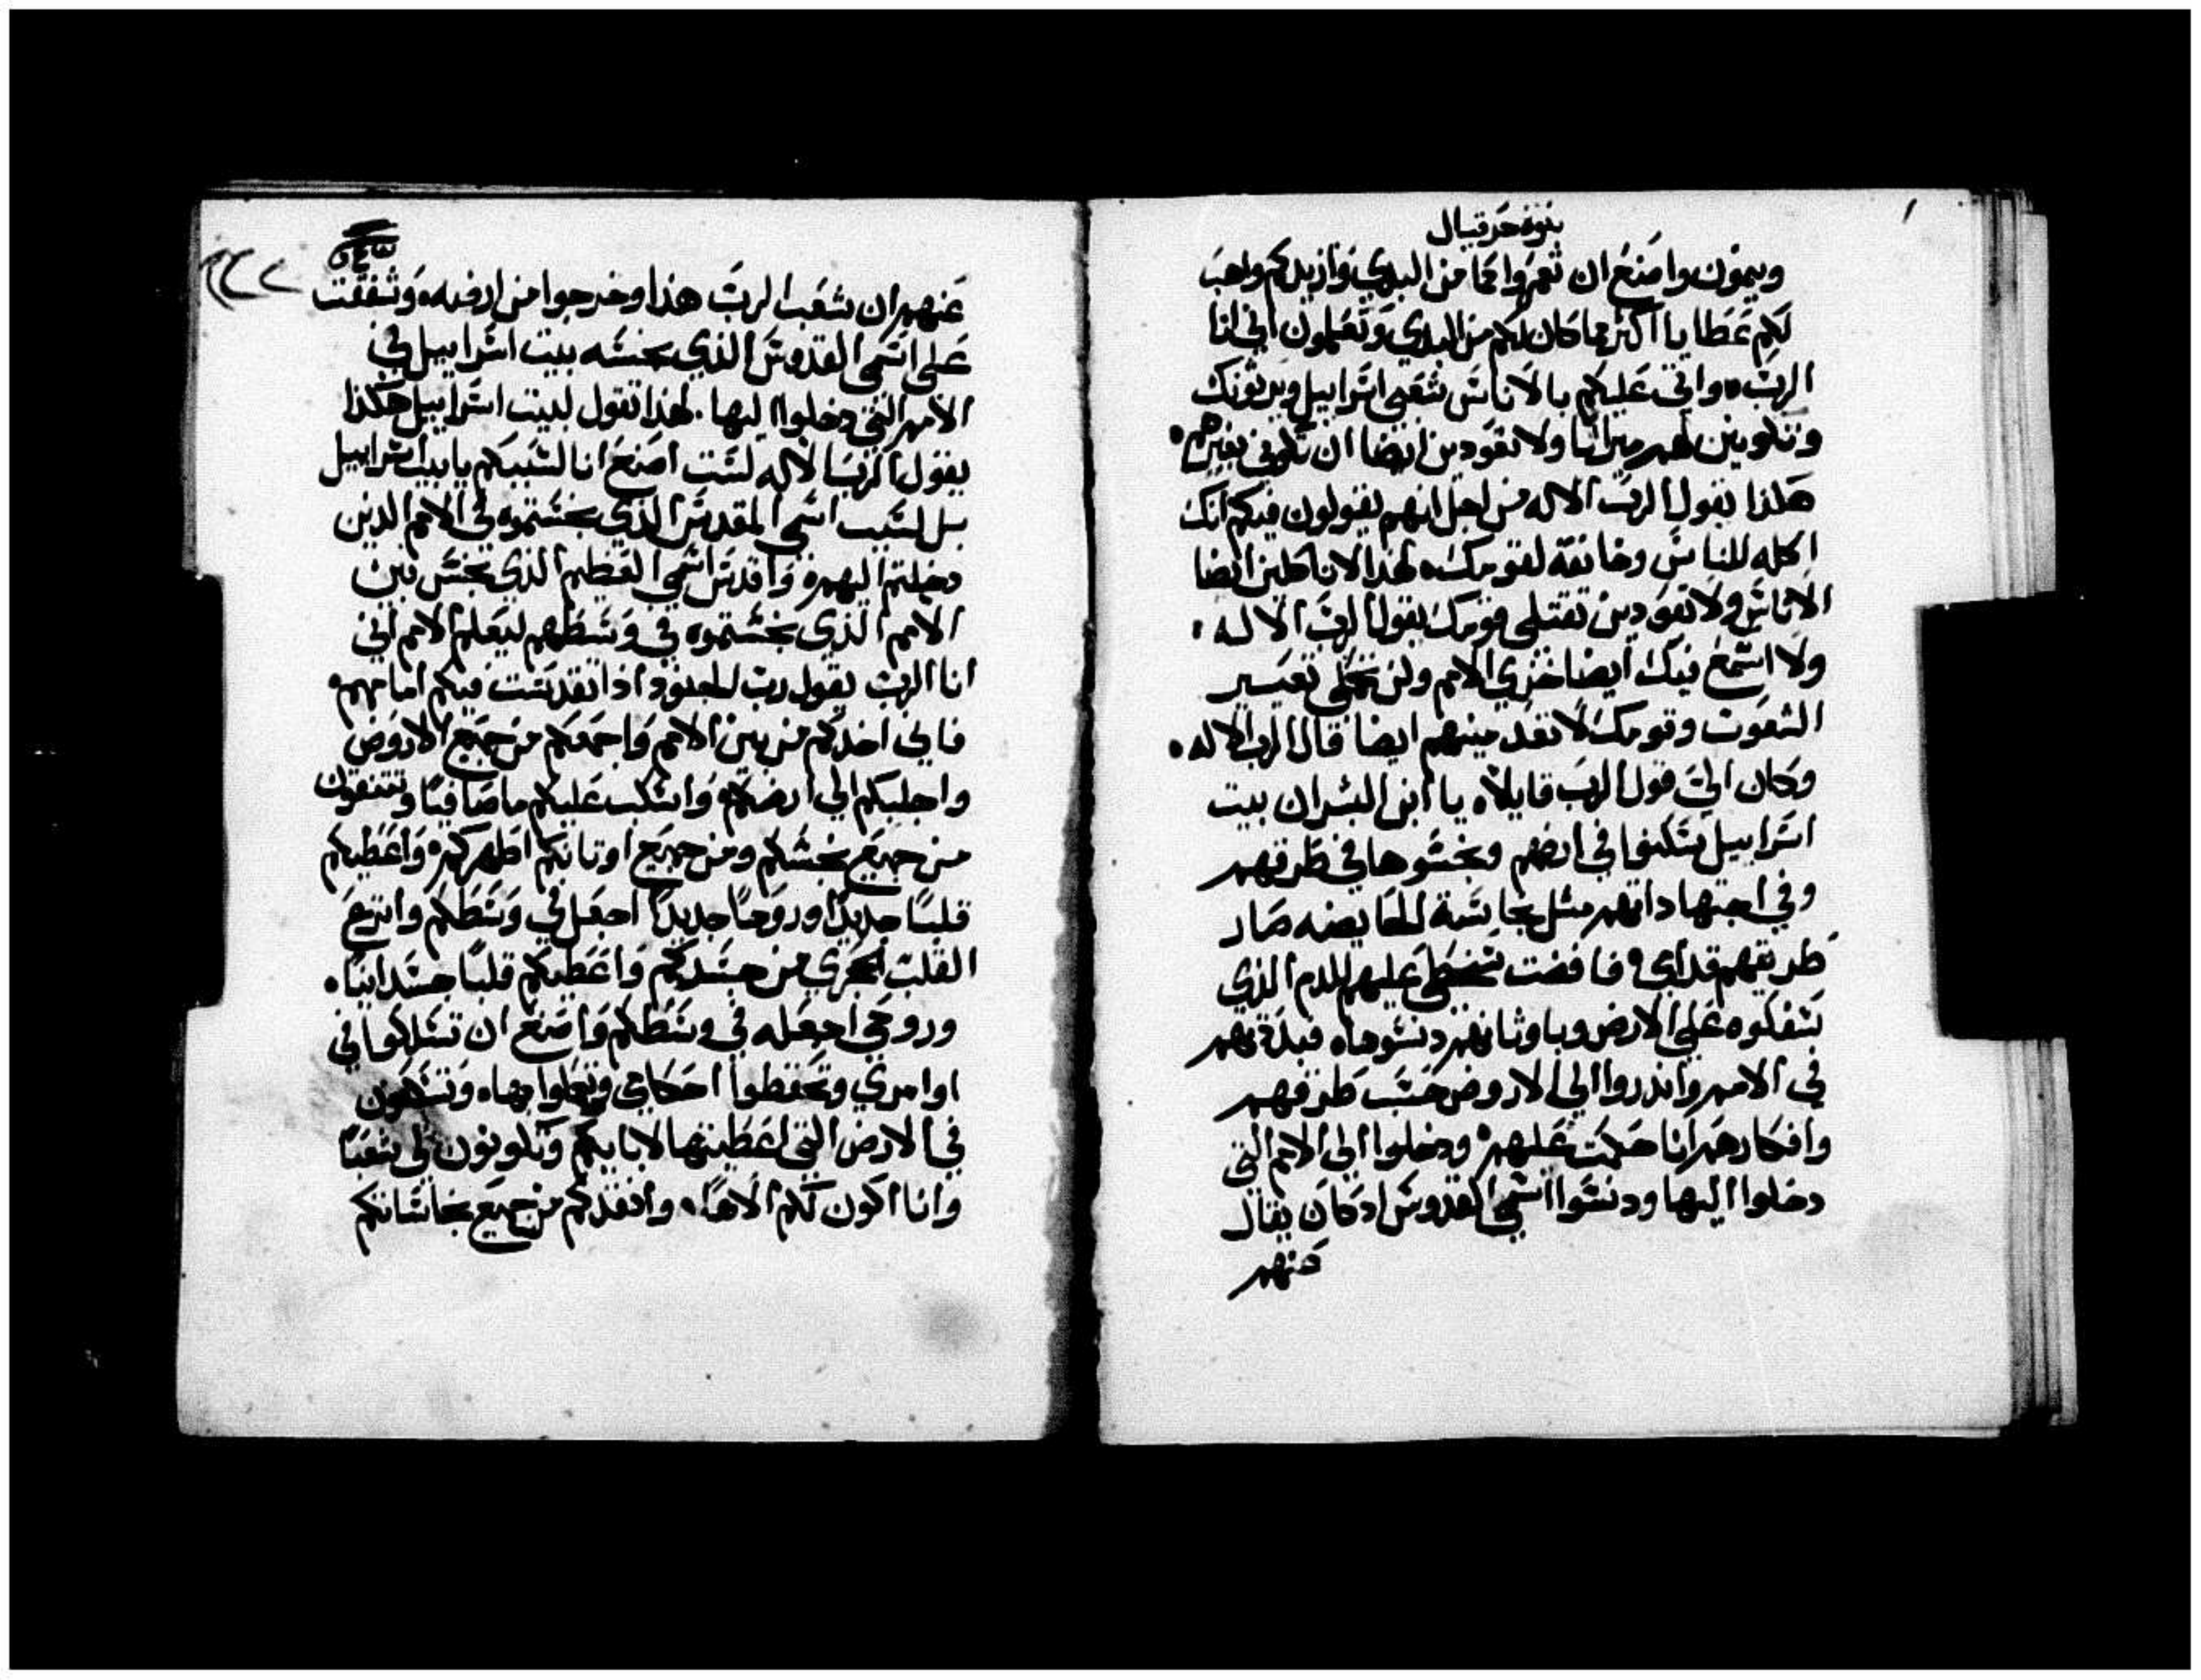 نبوة حزقيال
وينمون واصنع ان تعمروا كما من البدي وازيدكم واهب
لكم عطايا اكثر مما كان لكم من البدي وتعلمون اني انا
الرب. واتي عليكم بالاناس شعبي اسراييل ويرثونك
وتكونين لهم ميراثا ولا تعودين ايضا ان تكوني بغيرهم.
هكذا يقول الرب الاله من اجل انهم يقولون فيكم انك
اكله للناس وخانقة لقومك. لهذا لا تاكلين ايضا
الاناس ولا تعودين تقتلي قومك يقول الرب الاله.
ولا اسمع فيك ايضا خزي الامم ولن تحملي تعيير
الشعوب وقومك لا تعدمينهم ايضا قال الرب الاله.
وكان الي قول الرب قايلا. يا ابن البشر ان بيت
اسراييل سكنوا في ارضهم ونجسوها في طرقهم
وفي اجتهاداتهم مثل نجاسة الحايضه صار
طريقهم قدامي. فافضت سخطي عليهم للدم الذي
سفكوه علي الارض وباوثانهم دنسوها. فبددتهم
في الامم واندروا الي الاروض حسب طرقهم
وافكارهم انا حكمت عليهم. ودخلوا الي الامم التي
دخلوا اليها ودنسوا اسمي القدوس اذ كان يقال
عنهم
عنهم ان شعب الرب هذا وخرجوا من ارضه. وشفقت
علي اسمي القدوس الذي نجسه بيت اسراييل في
الامم التي دخلوا اليها. لهذا تقول لبيت اسراييل هكذا
يقول الرب الاله لست اصنع انا لسببكم يا بيت اسراييل
بل لسبب اسمي المقدس الذي نجستموه في الامم الذين
دخلتم اليهم. واقدس اسمي العظيم الذي نجس بين
الامم الذي نجستموه في وسطهم ليعلم الامم اني
انا الرب يقول رب الجنود اذا تقدست فيكم امامهم.
فاني اخذكم من بين الامم واجمعكم من جميع الاروض
واجلبكم الي ارضكم. واسكب عليكم ما صافيا وتتنقون
من جميع نجسكم ومن جميع اوثانكم اطهركم. واعطيكم
قلبا جديدا وروحا جديدا اجعل في وسطكم وانزع
القلب الحجري من جسدكم واعطيكم قلبا جسدانيا.
وروحي اجعله في وسطكم واصنع ان تسلكوا في
اوامري وتحفظوا احكامي وتعملوا بها. وتسكنون
في الارض التي اعطيتها لابايكم وتكونون لي شعبا
وانا اكون لكم الاها. وانقذكم من جميع نجاساتكم